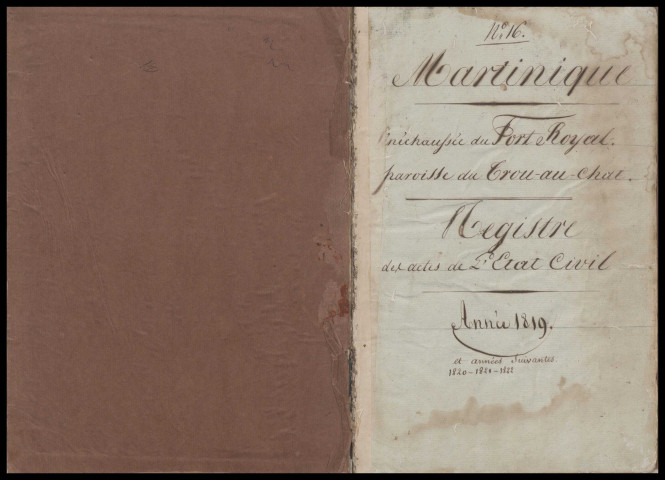 No. 16.
Martinique
Sénéchaussée du Fort Royal.
paroisse du Trou-au-Chat.
Registre
des actes de L'Etat Civil
Année 1819.
et années suivantes.
1820-1821-1822